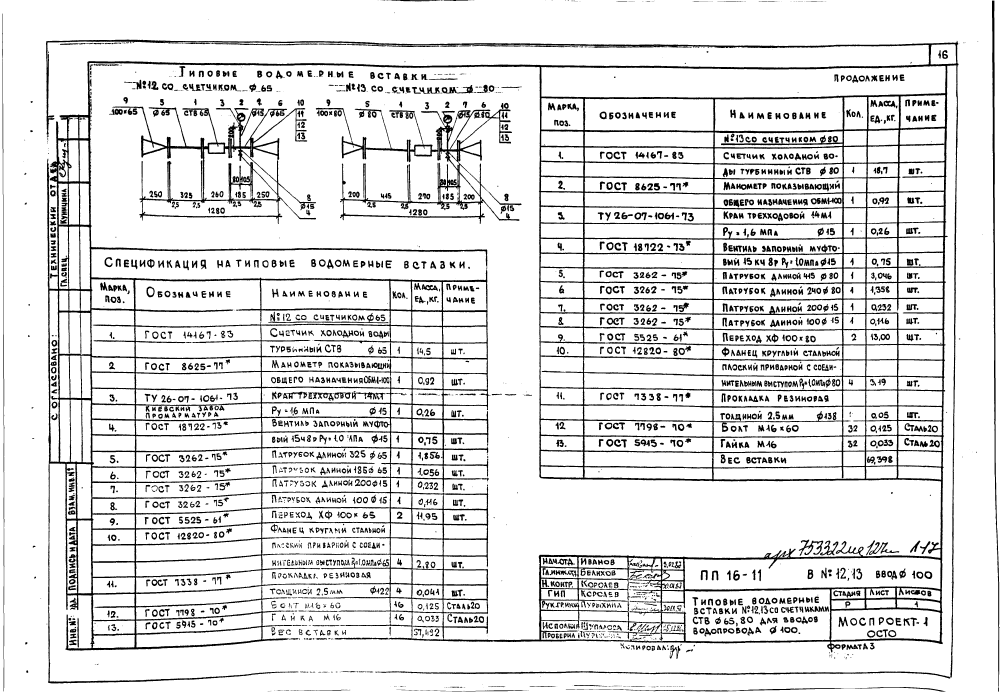 16
ТИПОВЫЕ ВОДОМЕРНЫЕ ВСТАВКИ
№12 СО СЧЕТЧИКОМ Ø 65
№13 СО СЧЕТЧИКОМ Ø 80
9 5 1 3 2 7 6 10
100×65 Ø 65 СТВ 65 Ø15 Ø65 11
12
13
250 325 260 185 250
80 105
2,5 2,5 2,5 2,5
1280
8
Ø15
4
9 5 1 3 2 7 6 10
100×80 Ø 80 СТВ 80 Ø15 Ø80 11
12
13
200 415 270 185 200
80 105
2,5 2,5 2,5 2,5
1280
8
Ø15
4
СПЕЦИФИКАЦИЯ НА ТИПОВЫЕ ВОДОМЕРНЫЕ ВСТАВКИ.
МАРКА, ПОЗ. ОБОЗНАЧЕНИЕ НАИМЕНОВАНИЕ КОЛ. МАССА, ЕД., КГ. ПРИМЕЧАНИЕ
№12 СО СЧЕТЧИКОМ Ø65
1. ГОСТ 14167-83 СЧЕТЧИК ХОЛОДНОЙ ВОДЫ
ТУРБИННЫЙ СТВ Ø 65 1 14,5 ШТ.
2 ГОСТ 8625-77* МАНОМЕТР ПОКАЗЫВАЮЩИЙ
ОБЩЕГО НАЗНАЧЕНИЯ ОБМ1-100 1 0,92 ШТ.
3. ТУ 26-07-1061-73 КРАН ТРЕХХОДОВОЙ 14М1
КИЕВСКИЙ ЗАВОД ПРОМАРМАТУРА Ру=16 МПа Ø15 1 0,26 ШТ.
4. ГОСТ 18722-73* ВЕНТИЛЬ ЗАПОРНЫЙ МУФТО-
ВЫЙ 15ч8р Ру=1,0 МПа Ø15 1 0,75 ШТ.
5. ГОСТ 3262-75* ПАТРУБОК ДЛИНОЙ 325 Ø 65 1 1,856 ШТ.
6. ГОСТ 3262-75* ПАТРУБОК ДЛИНОЙ 185 Ø 65 1 1,056 ШТ.
7. ГОСТ 3262-75* ПАТРУБОК ДЛИНОЙ 200 Ø15 1 0,232 ШТ.
8. ГОСТ 3262-75* ПАТРУБОК ДЛИНОЙ 100 Ø 15 1 0,116 ШТ.
9. ГОСТ 5525-61* ПЕРЕХОД ХФ 100×65 2 11,95 ШТ.
10. ГОСТ 12820-80* ФЛАНЕЦ КРУГЛЫЙ СТАЛЬНОЙ
ПЛОСКИЙ ПРИВАРНОЙ С СОЕДИ-
НИТЕЛЬНЫМ ВЫСТУПОМ Ру=1,0МПа Ø65 4 2,80 ШТ.
11. ГОСТ 7338-77* ПРОКЛАДКА РЕЗИНОВАЯ
ТОЛЩИНОЙ 2,5ММ Ø122 4 0,041 ШТ.
12. ГОСТ 7798-70* БОЛТ М16×60 16 0,125 СТАЛЬ20
13. ГОСТ 5915-70* ГАЙКА М16 16 0,033 СТАЛЬ20
ВЕС ВСТАВКИ
ПРОДОЛЖЕНИЕ
МАРКА, ПОЗ. ОБОЗНАЧЕНИЕ НАИМЕНОВАНИЕ КОЛ. МАССА, ЕД., КГ. ПРИМЕЧАНИЕ
№13 СО СЧЕТЧИКОМ Ø80
1. ГОСТ 14167-83 СЧЕТЧИК ХОЛОДНОЙ ВО-
ДЫ ТУРБИННЫЙ СТВ Ø 80 1 18,7 ШТ.
2. ГОСТ 8625-77* МАНОМЕТР ПОКАЗЫВАЮЩИЙ
ОБЩЕГО НАЗНАЧЕНИЯ ОБМ1-100 1 0,92 ШТ.
3. ТУ 26-07-1061-73 КРАН ТРЕХХОДОВОЙ 14М1
Ру=1,6 МПа Ø15 1 0,26 ШТ.
4. ГОСТ 18722-73* ВЕНТИЛЬ ЗАПОРНЫЙ МУФТО-
ВЫЙ 15кч 8р Ру=1,0МПа Ø15 1 0,75 ШТ.
5. ГОСТ 3262-75* ПАТРУБОК ДЛИНОЙ 415 Ø 80 1 3,046 ШТ.
6 ГОСТ 3262-75* ПАТРУБОК ДЛИНОЙ 240 Ø 80 1 1,358 ШТ.
7. ГОСТ 3262-75* ПАТРУБОК ДЛИНОЙ 200 Ø15 1 0,232 ШТ.
8. ГОСТ 3262-75* ПАТРУБОК ДЛИНОЙ 100 Ø 15 1 0,116 ШТ.
9. ГОСТ 5525-61* ПЕРЕХОД ХФ 100×80 2 13,00 ШТ.
10. ГОСТ 12820-80* ФЛАНЕЦ КРУГЛЫЙ СТАЛЬНОЙ
ПЛОСКИЙ ПРИВАРНОЙ С СОЕДИ-
НИТЕЛЬНЫМ ВЫСТУПОМ Ру=1,0МПа Ø80 4 3,19 ШТ.
11. ГОСТ 7338-77* ПРОКЛАДКА РЕЗИНОВАЯ
ТОЛЩИНОЙ 2,5ММ Ø138 0,05 ШТ.
12 ГОСТ 7798-70* БОЛТ М16×60 32 0,125 СТАЛЬ20
13. ГОСТ 5915-70* ГАЙКА М16 32 0,033 СТАЛЬ20
ВЕС ВСТАВКИ 69,398
НАЧ.ОТД. ИВАНОВ
ГЛ.ИНЖ.ОТД. БЕЛИХОВ
Н.КОНТР. КОРОЛЕВ
ГИП КОРОЛЕВ
РУК.ГРУППЫ ПУРЫХИНА
ИСПОЛНИЛ ШУПАРОВА
ПРОВЕРИЛ ПУРЫХИНА
ПП 16-11 В №12,13 ВВОД Ø 100
ТИПОВЫЕ ВОДОМЕРНЫЕ
ВСТАВКИ №12,13 СО СЧЕТЧИКАМИ
СТВ Ø 65,80 ДЛЯ ВВОДОВ
ВОДОПРОВОДА Ø 100.
СТАДИЯ ЛИСТ ЛИСТОВ
Р 1
МОСПРОЕКТ-1
ОСТО
КОПИРОВАЛ:
ФОРМАТ А3
ТЕХНИЧЕСКИЙ ОТДЕЛ
ГЛ.СПЕЦ. КУНИЦИНА
СОГЛАСОВАНО:
ВЗАМ. ИНВ. №
ПОДПИСЬ И ДАТА
ИНВ. № ПОДЛ.